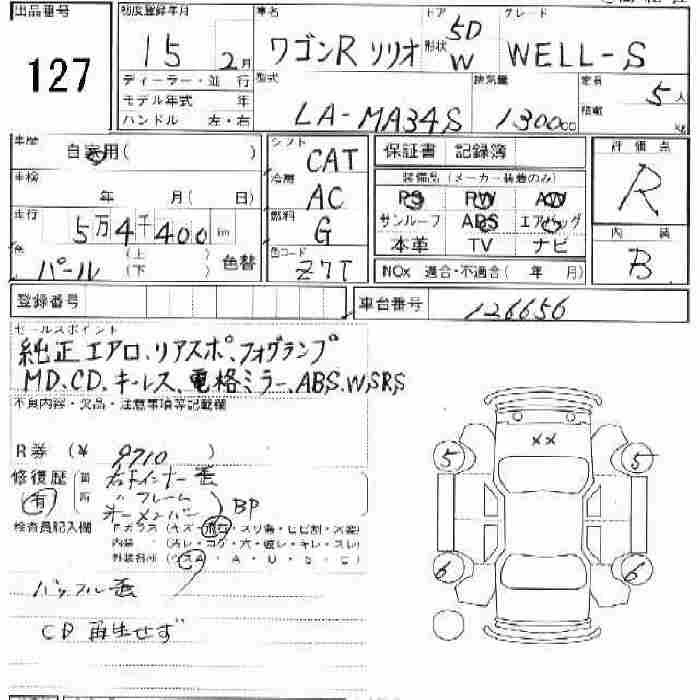 出品番号 127
初度登録年月 15 2月
車名 ワゴンR ソリオ
ドア 形状 5D W
グレード WELL-S
ディーラー・並行
モデル年式 年
ハンドル 左・右
型式 LA-MA34S
排気量 1300cc
定員 5人
積載 kg
車歴 自家用( )
車検 年 月( 日)
走行 5万4千400km
色 パール (上) (下) 色替
シフト CAT
冷房 AC
燃料 G
色コード Z7T
保証書 記録簿
装備品(メーカー装着のみ)
PS PW AW
サンルーフ ABS エアバッグ
本革 TV ナビ
NOx 適合・不適合( 年 月)
評価点 R
内装 B
登録番号
車台番号 126656
セールスポイント
純正エアロ、リアスポ、フォグランプ
MD、CD、キーレス、電格ミラー、ABS、W、SRS
不具内容・欠品・注意事項等記載欄
R券(¥ 9710 )
修復歴 有 箇所
右ドインナー
〃 フレーム
BP
検査員記入欄
Fガラス(キズ・飛石・スリ傷・ヒビ割・大要)
内装(汚レ・コゲ・穴・破レ・キレ・スレ)
外装各所(ウスA・A・U・
バッフル歪
CD 再生せず
××
5 5
6 6